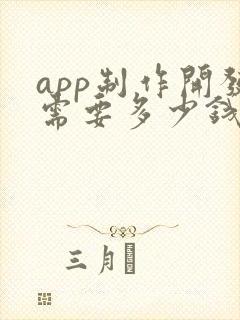 app制作開發
需要多少錢
三月